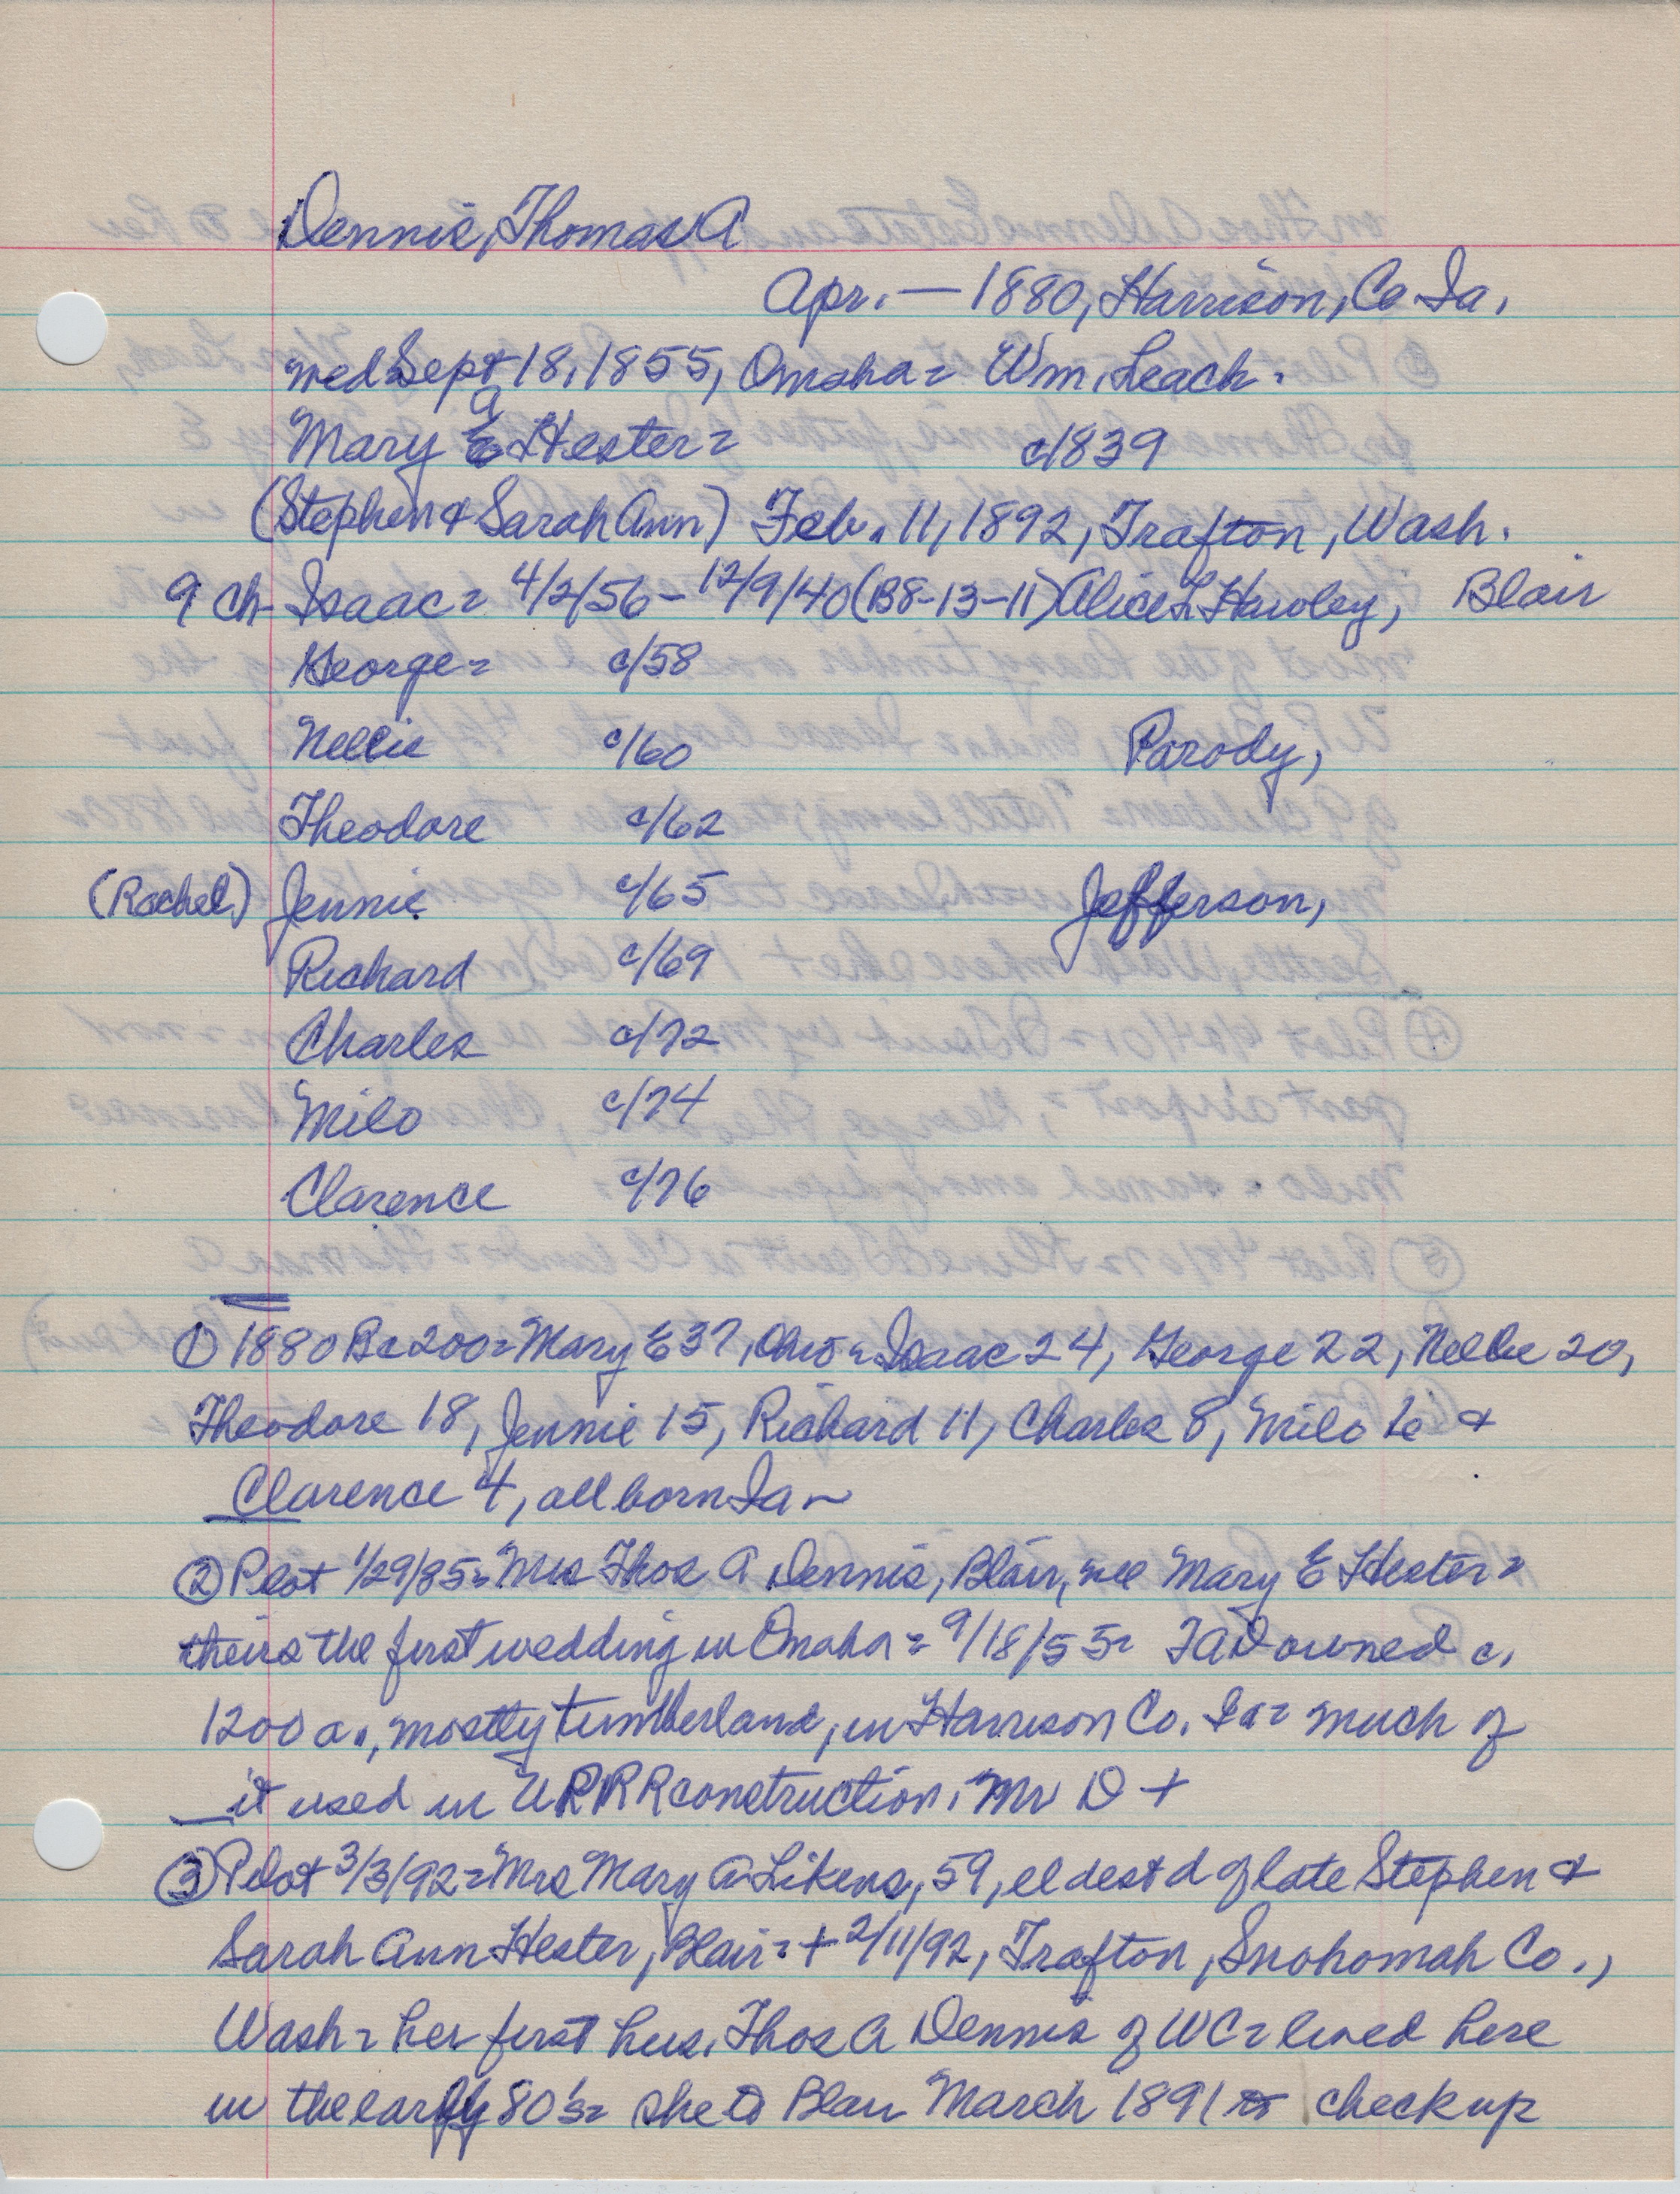 Dennis, Thomas A
Apr. — 1880, Harrison, Co Ia.
wed Sept 18, 1855, Omaha = Wm. Leach.
a
Mary E Hester = c/1839
(Stephen & Sarah Ann) Feb. 11, 1892, Trafton, Wash.
9 ch - Isaac = 4/2/56 - 12/9/40 (B8-13-11) Alice L Hawley, Blair
George = c/58
Nellie c/60 Parody,
Theodore c/62
(Rachel) Jennie c/65 Jefferson,
Richard c/69
Charles c/72
Milo c/74
Clarence c/76
① 1880 Bc 200 = Mary E 37, Ohio = Isaac 24, George 22, Nellie 20,
Theodore 18, Jennie 15, Richard 11, Charles 8, Milo &
Clarence 4, all born Ia ~
② Pilot 1/29/85 = Mrs Thos A Dennis, Blair, nee Mary E Hester =
theirs the first wedding in Omaha = 9/18/55 = TAD owned c.
1200 a., mostly timberland, in Harrison Co. Ia = much of
it used in UPRR construction. Mr D +
③ Pilot 3/3/92 = Mrs Mary A Likens, 59, eldest d of late Stephen &
Sarah Ann Hester, Blair = + 2/11/92, Trafton, Snohomah Co.,
Wash = her first hus. Thos A Dennis of WC = lived here
in the early 80's = she to Blair March 1891 to check up